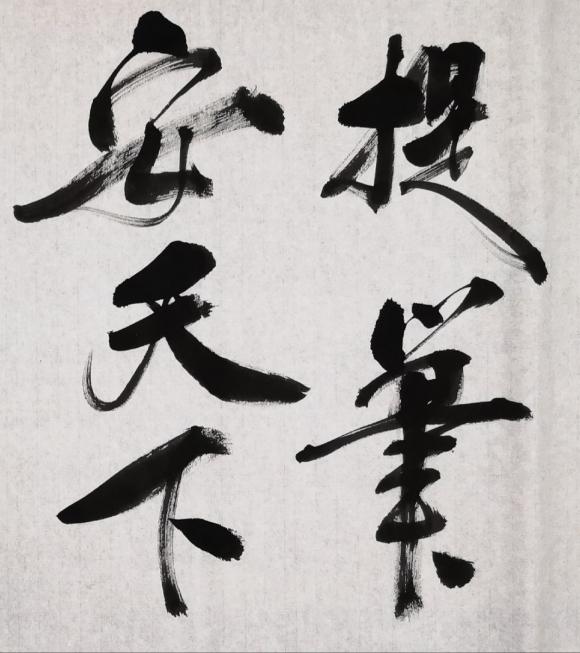 提筆
安天下